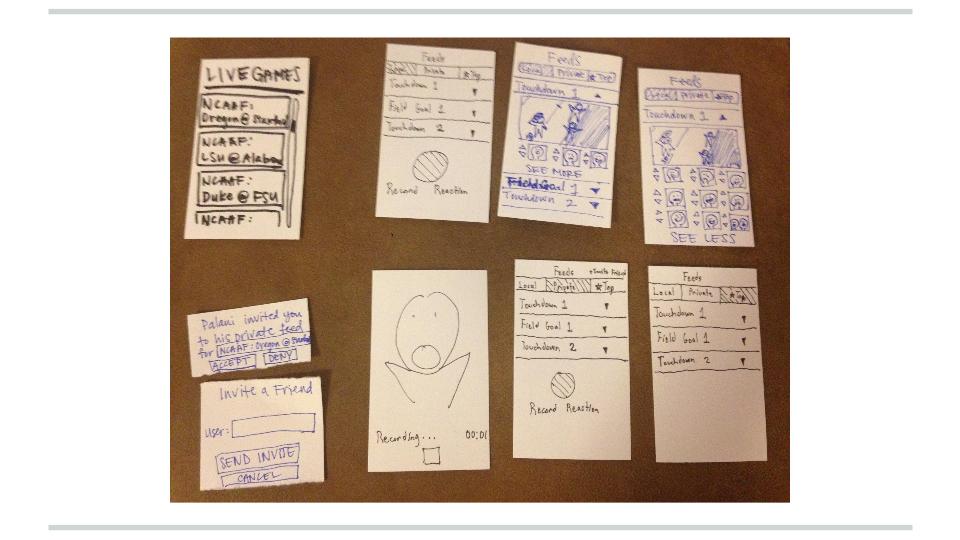 LIVE GAMES
NCAAF:
Oregon @ Stanfo
NCAAF:
LSU @ Alabam
NCAAF:
Duke @ FSU
NCAAF:
Feeds
Local Private ★Top
Touchdown 1
Field Goal 1
Touchdown 2
Record Reaction
Feeds
Local Private ★Top
Touchdown 1
SEE MORE
Field Goal 1
Touchdown 2
Feeds
Local Private ★Top
Touchdown 1
SEE LESS
Palani invited you
to his private feed
for NCAAF: Oregon @
ACCEPT DENY
Invite a Friend
user:
SEND INVITE
CANCEL
Recording... 00:01
Feeds +Invite Friend
Local Private ★Top
Touchdown 1
Field Goal 1
Touchdown 2
Record Reaction
Feeds
Local Private ★Top
Touchdown 1
Field Goal 1
Touchdown 2